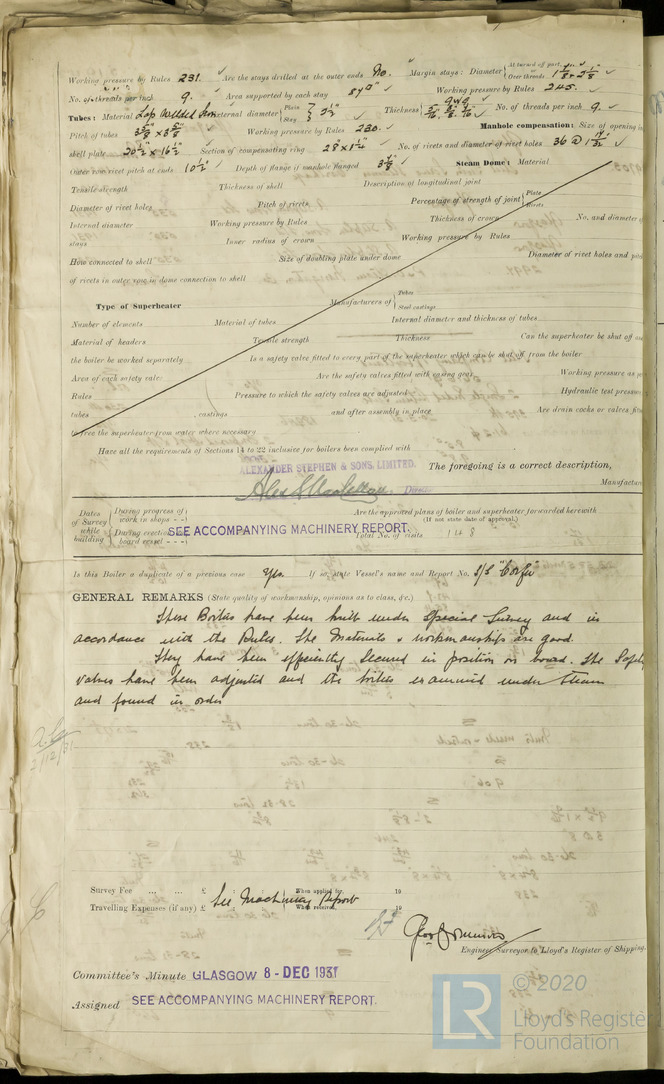 Working pressure by Rules 231. Are the stays drilled at the outer ends No. Margin stays: Diameter { At turned off part, or Over threads
No. of threads per inch 9. Area supported by each stay Working pressure by Rules 245.
Tubes: Material Lap Welded Iron External diameter { Plain Stay } Thickness { No. of threads per inch 9.
Pitch of tubes Working pressure by Rules 230. Manhole compensation: Size of opening in
shell plate 20½" x 16½" Section of compensating ring No. of rivets and diameter of rivet holes 36 @
Outer row rivet pitch at ends 10½" Depth of flange if manhole flanged Steam Dome: Material
Tensile strength Thickness of shell Description of longitudinal joint
Diameter of rivet holes Pitch of rivets Percentage of strength of joint { Plate Rivets
Internal diameter Working pressure by Rules Thickness of crown No. and diameter of
stays Inner radius of crown Working pressure by Rules
How connected to shell Size of doubling plate under dome Diameter of rivet holes and pitch
of rivets in outer row in dome connection to shell
Type of Superheater Manufacturers of { Tubes Steel castings
Number of elements Material of tubes Internal diameter and thickness of tubes
Material of headers Tensile strength Thickness Can the superheater be shut off and
the boiler be worked separately Is a safety valve fitted to every part of the superheater which can be shut off from the boiler
Area of each safety valve Are the safety valves fitted with easing gear Working pressure as per
Rules Pressure to which the safety valves are adjusted Hydraulic test pressure
tubes , castings and after assembly in place Are drain cocks or valves fitted
to free the superheater from water where necessary
Have all the requirements of Sections 14 to 22 inclusive for boilers been complied with
ALEXANDER STEPHEN & SONS, LIMITED. The foregoing is a correct description,
Director Manufacturer
Dates of Survey while building { During progress of work in shops - - Are the approved plans of boiler and superheater forwarded herewith
(If not state date of approval.)
During erection on board vessel - - - SEE ACCOMPANYING MACHINERY REPORT. Total No. of visits 148
Is this Boiler a duplicate of a previous case Yes. If so, state Vessel's name and Report No. S/S "Corfu"
GENERAL REMARKS (State quality of workmanship, opinions as to class, &c.)
These Boilers have been built under Special Survey and in
accordance with the Rules. The Materials & workmanship are good.
They have been efficiently secured in position on board. The Safety
valves have been adjusted and the boilers examined under steam
and found in order
2/12/31
Survey Fee ... ... £ : : When applied for, 19
Travelling Expenses (if any) £ See Machinery Report When received, 19
Engineer Surveyor to Lloyd's Register of Shipping.
Committee's Minute GLASGOW 8 - DEC 1931
Assigned SEE ACCOMPANYING MACHINERY REPORT.
LR © 2020
Lloyd's Register
Foundation